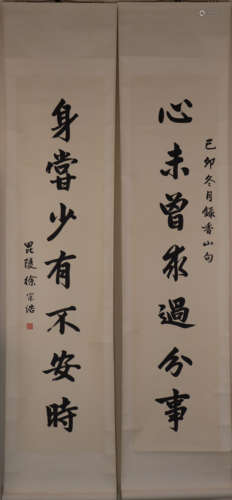 己卯冬月錄香山句
心未曾求過分事
身嘗少有不安時
毘陵徐宗浩